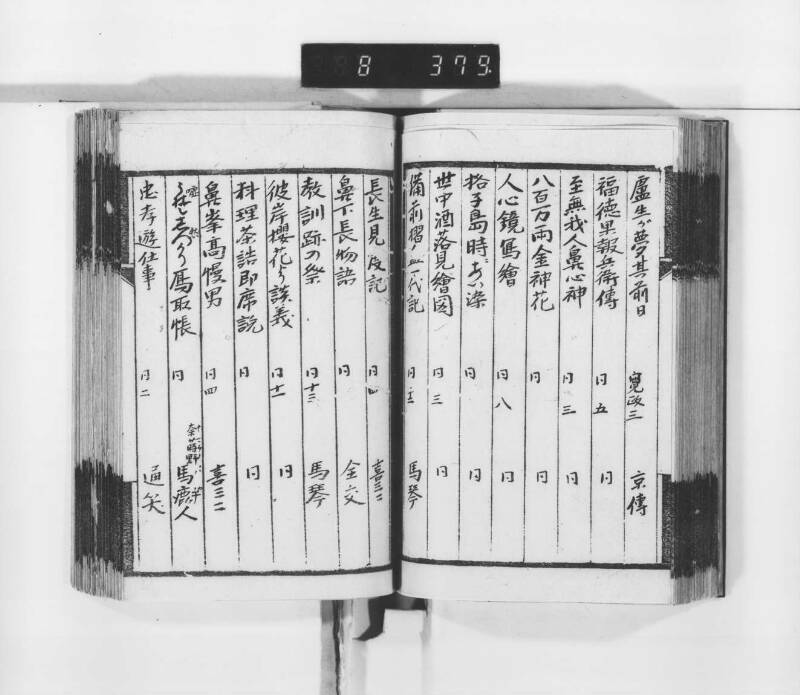 8 379
盧生が夢其前日 寛政三 京傳
福徳果報兵衛傳 同五 同
至無我人鼻心神 同三 同
八百万両金神花 同 同
人心鏡寫繪 同八 同
格子島時 染 同 同
世中洒落見繪図 同三 同
備前擂 一代記 馬琴
長生見 記 同四 喜三二
鼻下長物語 同 全交
教訓跡の祭 同十三 馬琴
彼岸櫻花より談義 同十一 同
料理茶話即席説 同 同
鼻峯高慢男 同四 喜三二
馬取帳 同 馬鹿人
忠孝遊仕事 同二 通笑